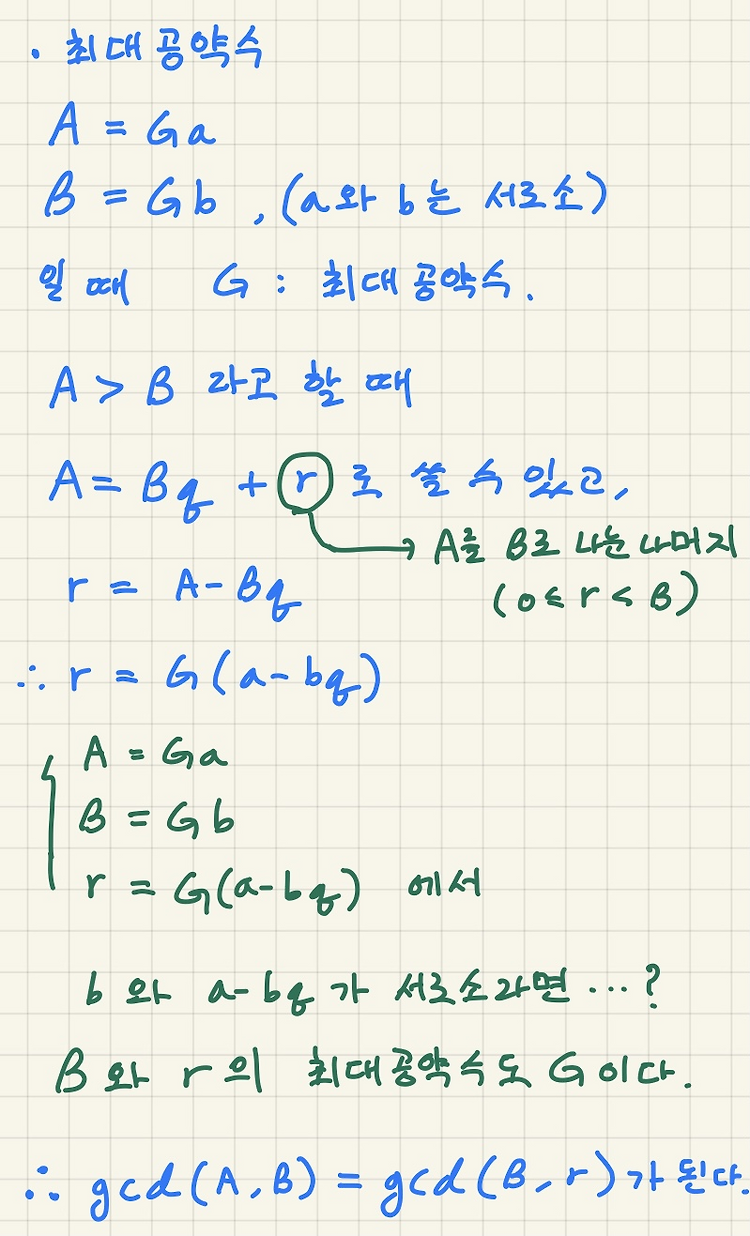 · 최대공약수
A = Ga
B = Gb , (a와 b는 서로소)
일 때 G : 최대공약수.
A > B 라고 할 때
A = Bq + r 로 쓸 수 있고,
→ A를 B로 나눈 나머지
r = A - Bq
(0 ≤ r < B)
∴ r = G(a - bq)
A = Ga
B = Gb
r = G(a-bq) 에서
b 와 a-bq 가 서로소라면 ...?
B 와 r 의 최대공약수도 G이다.
∴ gcd(A, B) = gcd(B, r)가 된다.